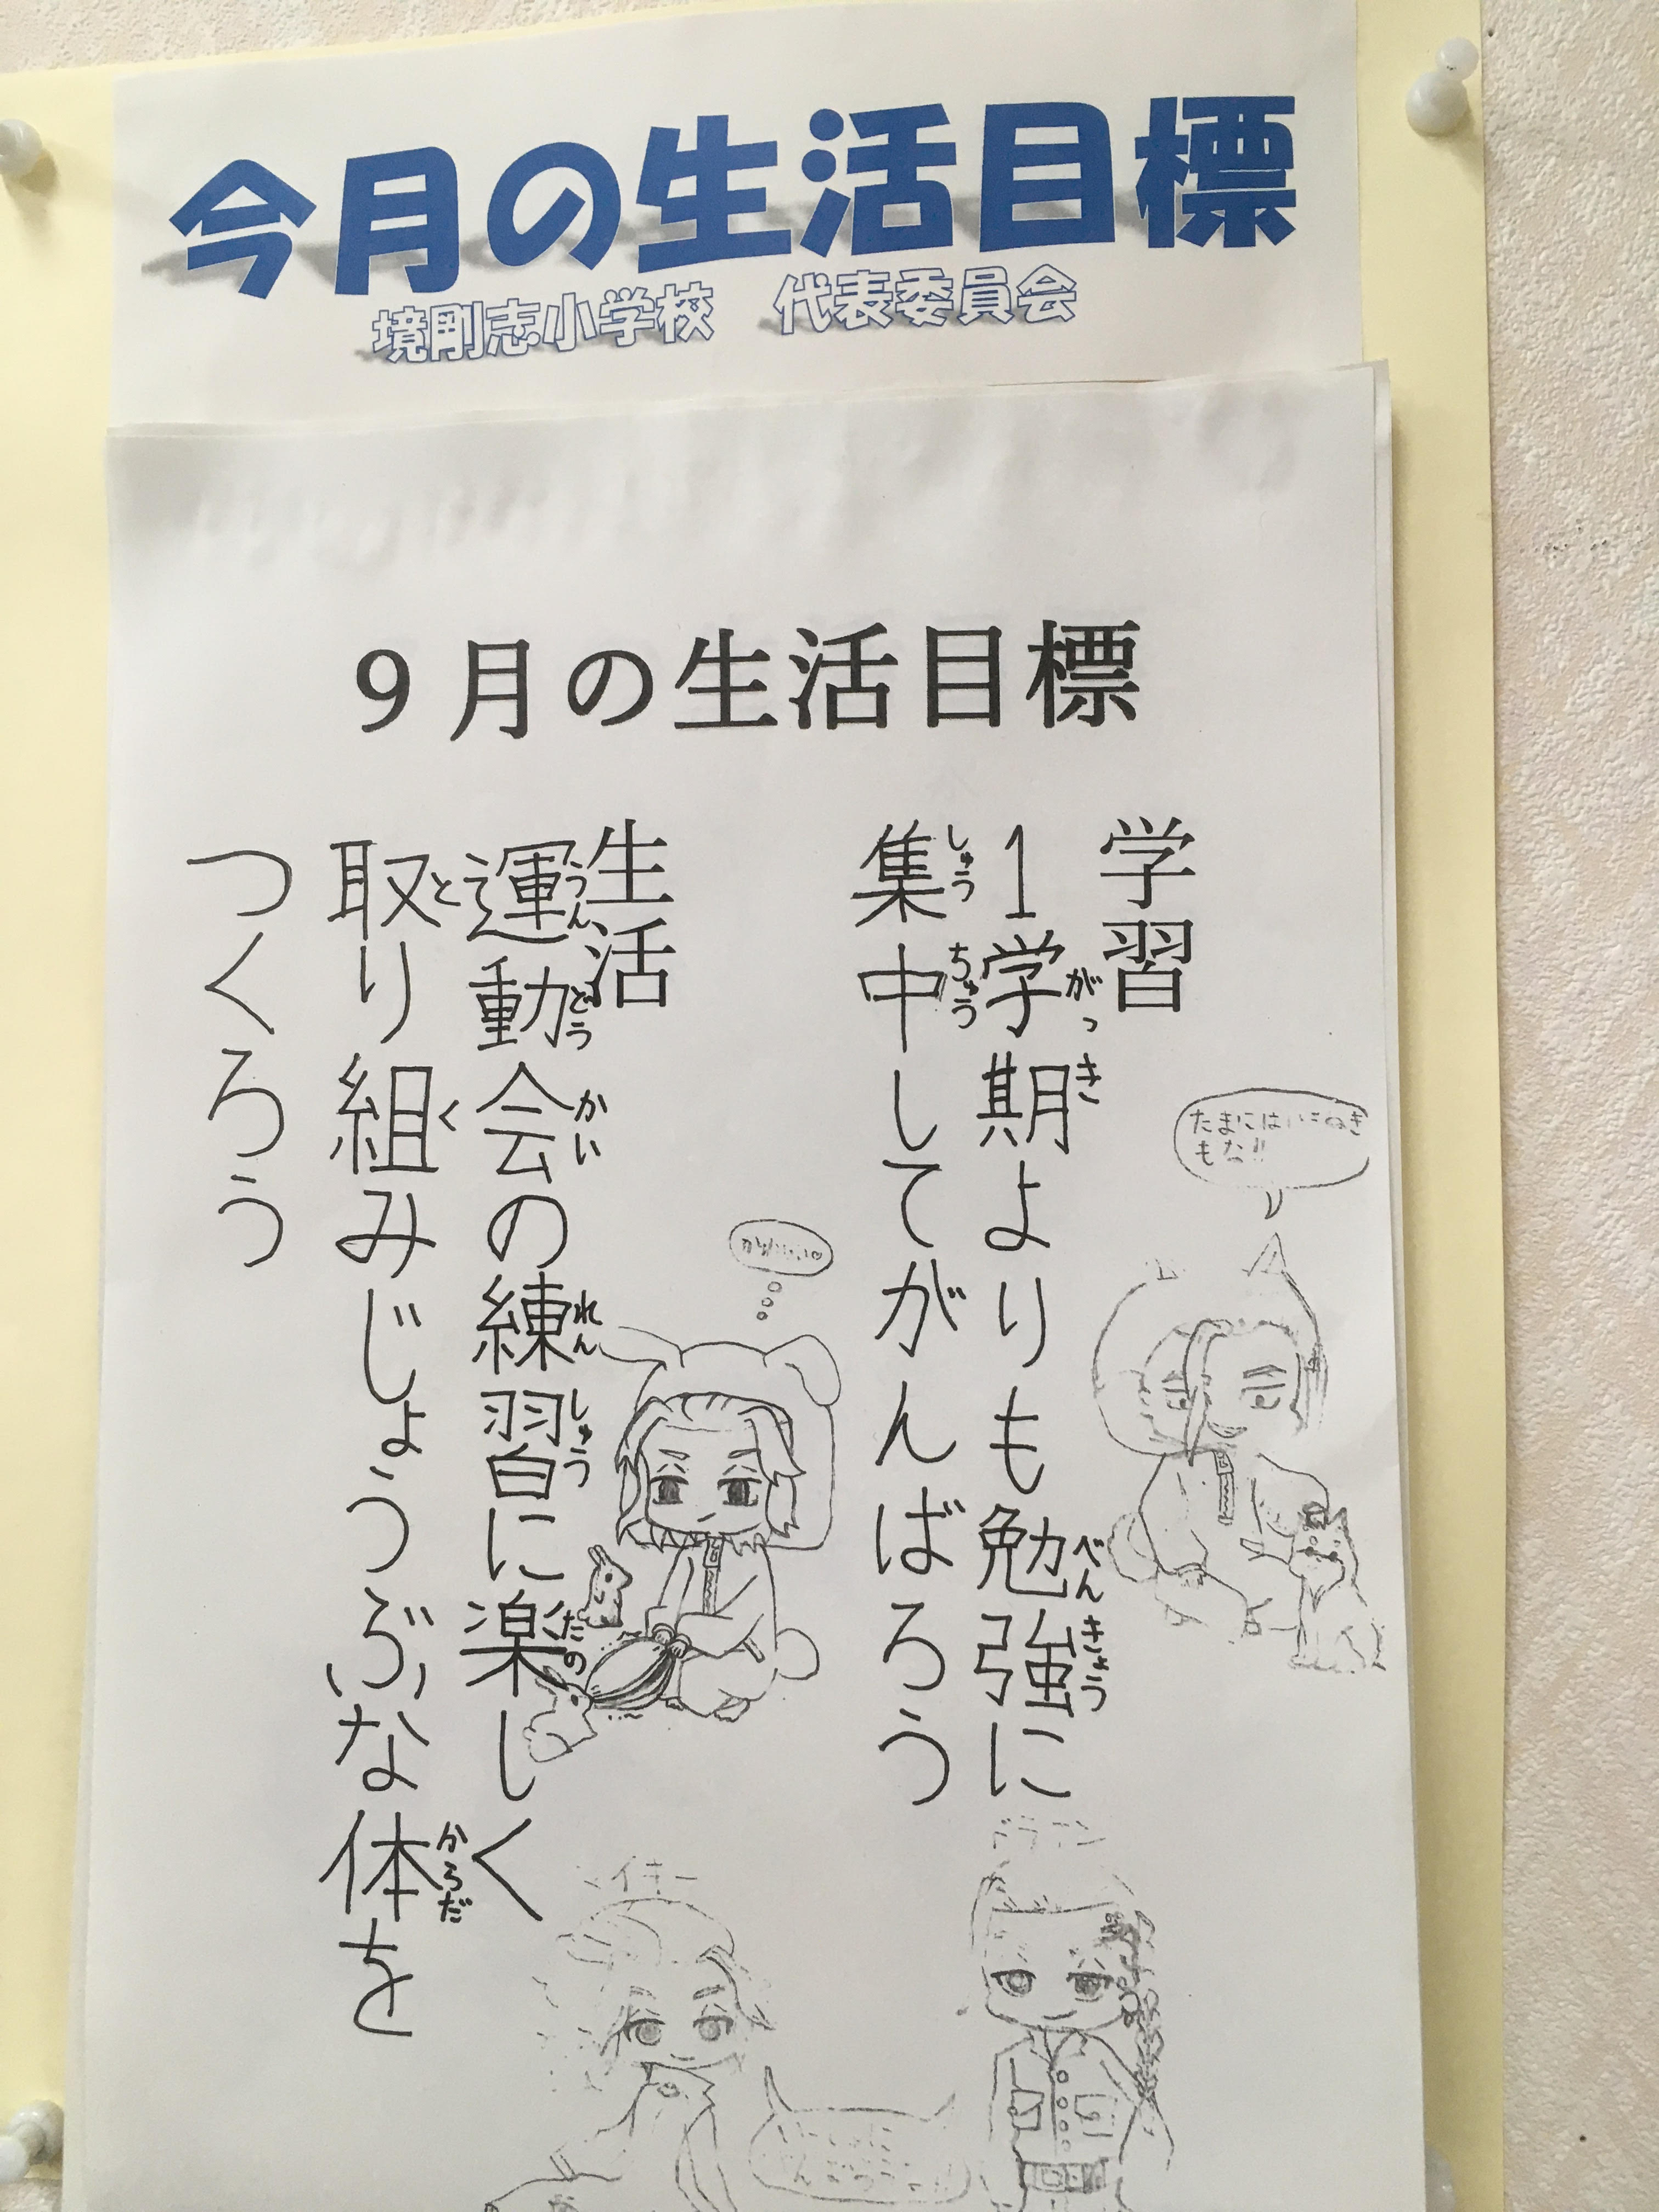 今月の生活目標
境剛志小学校　代表委員会
９月の生活目標
学習
1学期よりも勉強に
集中してがんばろう
生活
運動会の練習に楽しく
取り組みじょうぶな体を
つくろう
たまにはいきぬき
もな!!